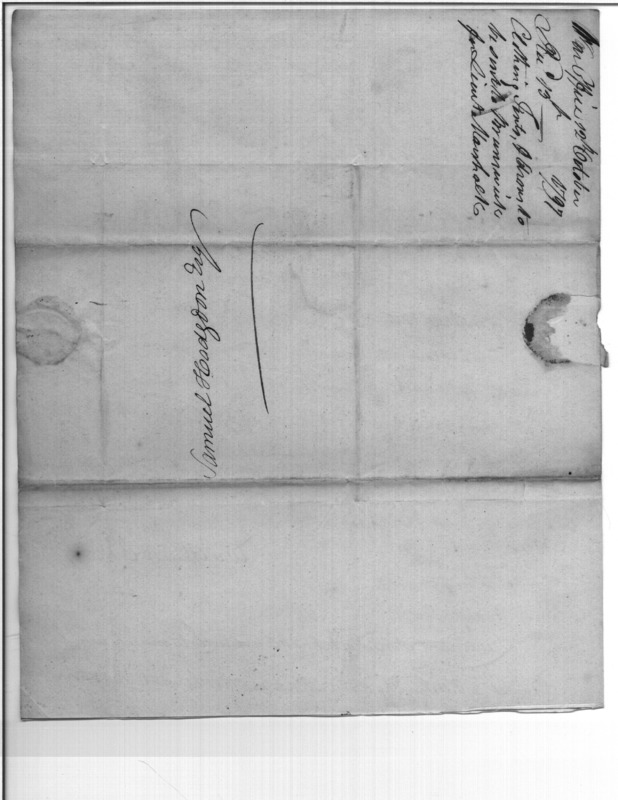 War Office 12 October
1797
Rec.d 13
Clothing, Tents, & drums to
be sent to Brunswick
for Lieut. Marshalk
Samuel Hodgdon Esq